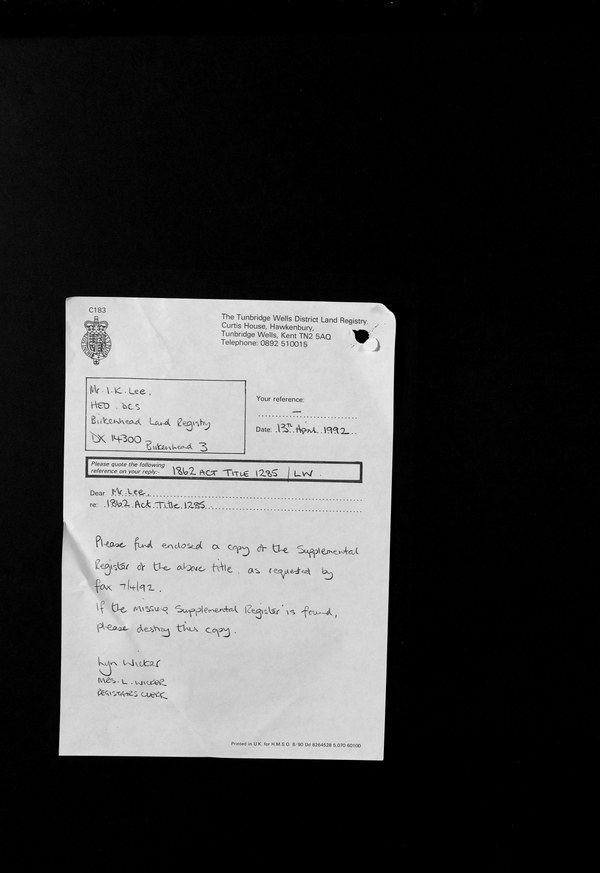 C183
The Tunbridge Wells District Land Registry,
Curtis House, Hawkenbury,
Tunbridge Wells, Kent TN2 5AQ
Telephone: 0892 510015
Mr. I.K. Lee.
HEO DCS
Birkenhead Land Registry
DX 14300 Birkenhead 3
Your reference:
—
Date: 13th April 1992
Please quote the following
reference on your reply:- 1862 ACT TITLE 1285 / LW.
Dear Mr. Lee.
re: 1862 Act Title 1285
Please find enclosed a copy of the Supplemental
Register of the above title. as requested by
fax 7/4/92.
If the missing Supplemental Register is found,
please destroy this copy.
Lyn Wicker
MRS. L. WICKER
REGISTRARS CLERK
Printed in U.K. for H.M.S.O. 8/90 Dd 8264528 S.070 60100